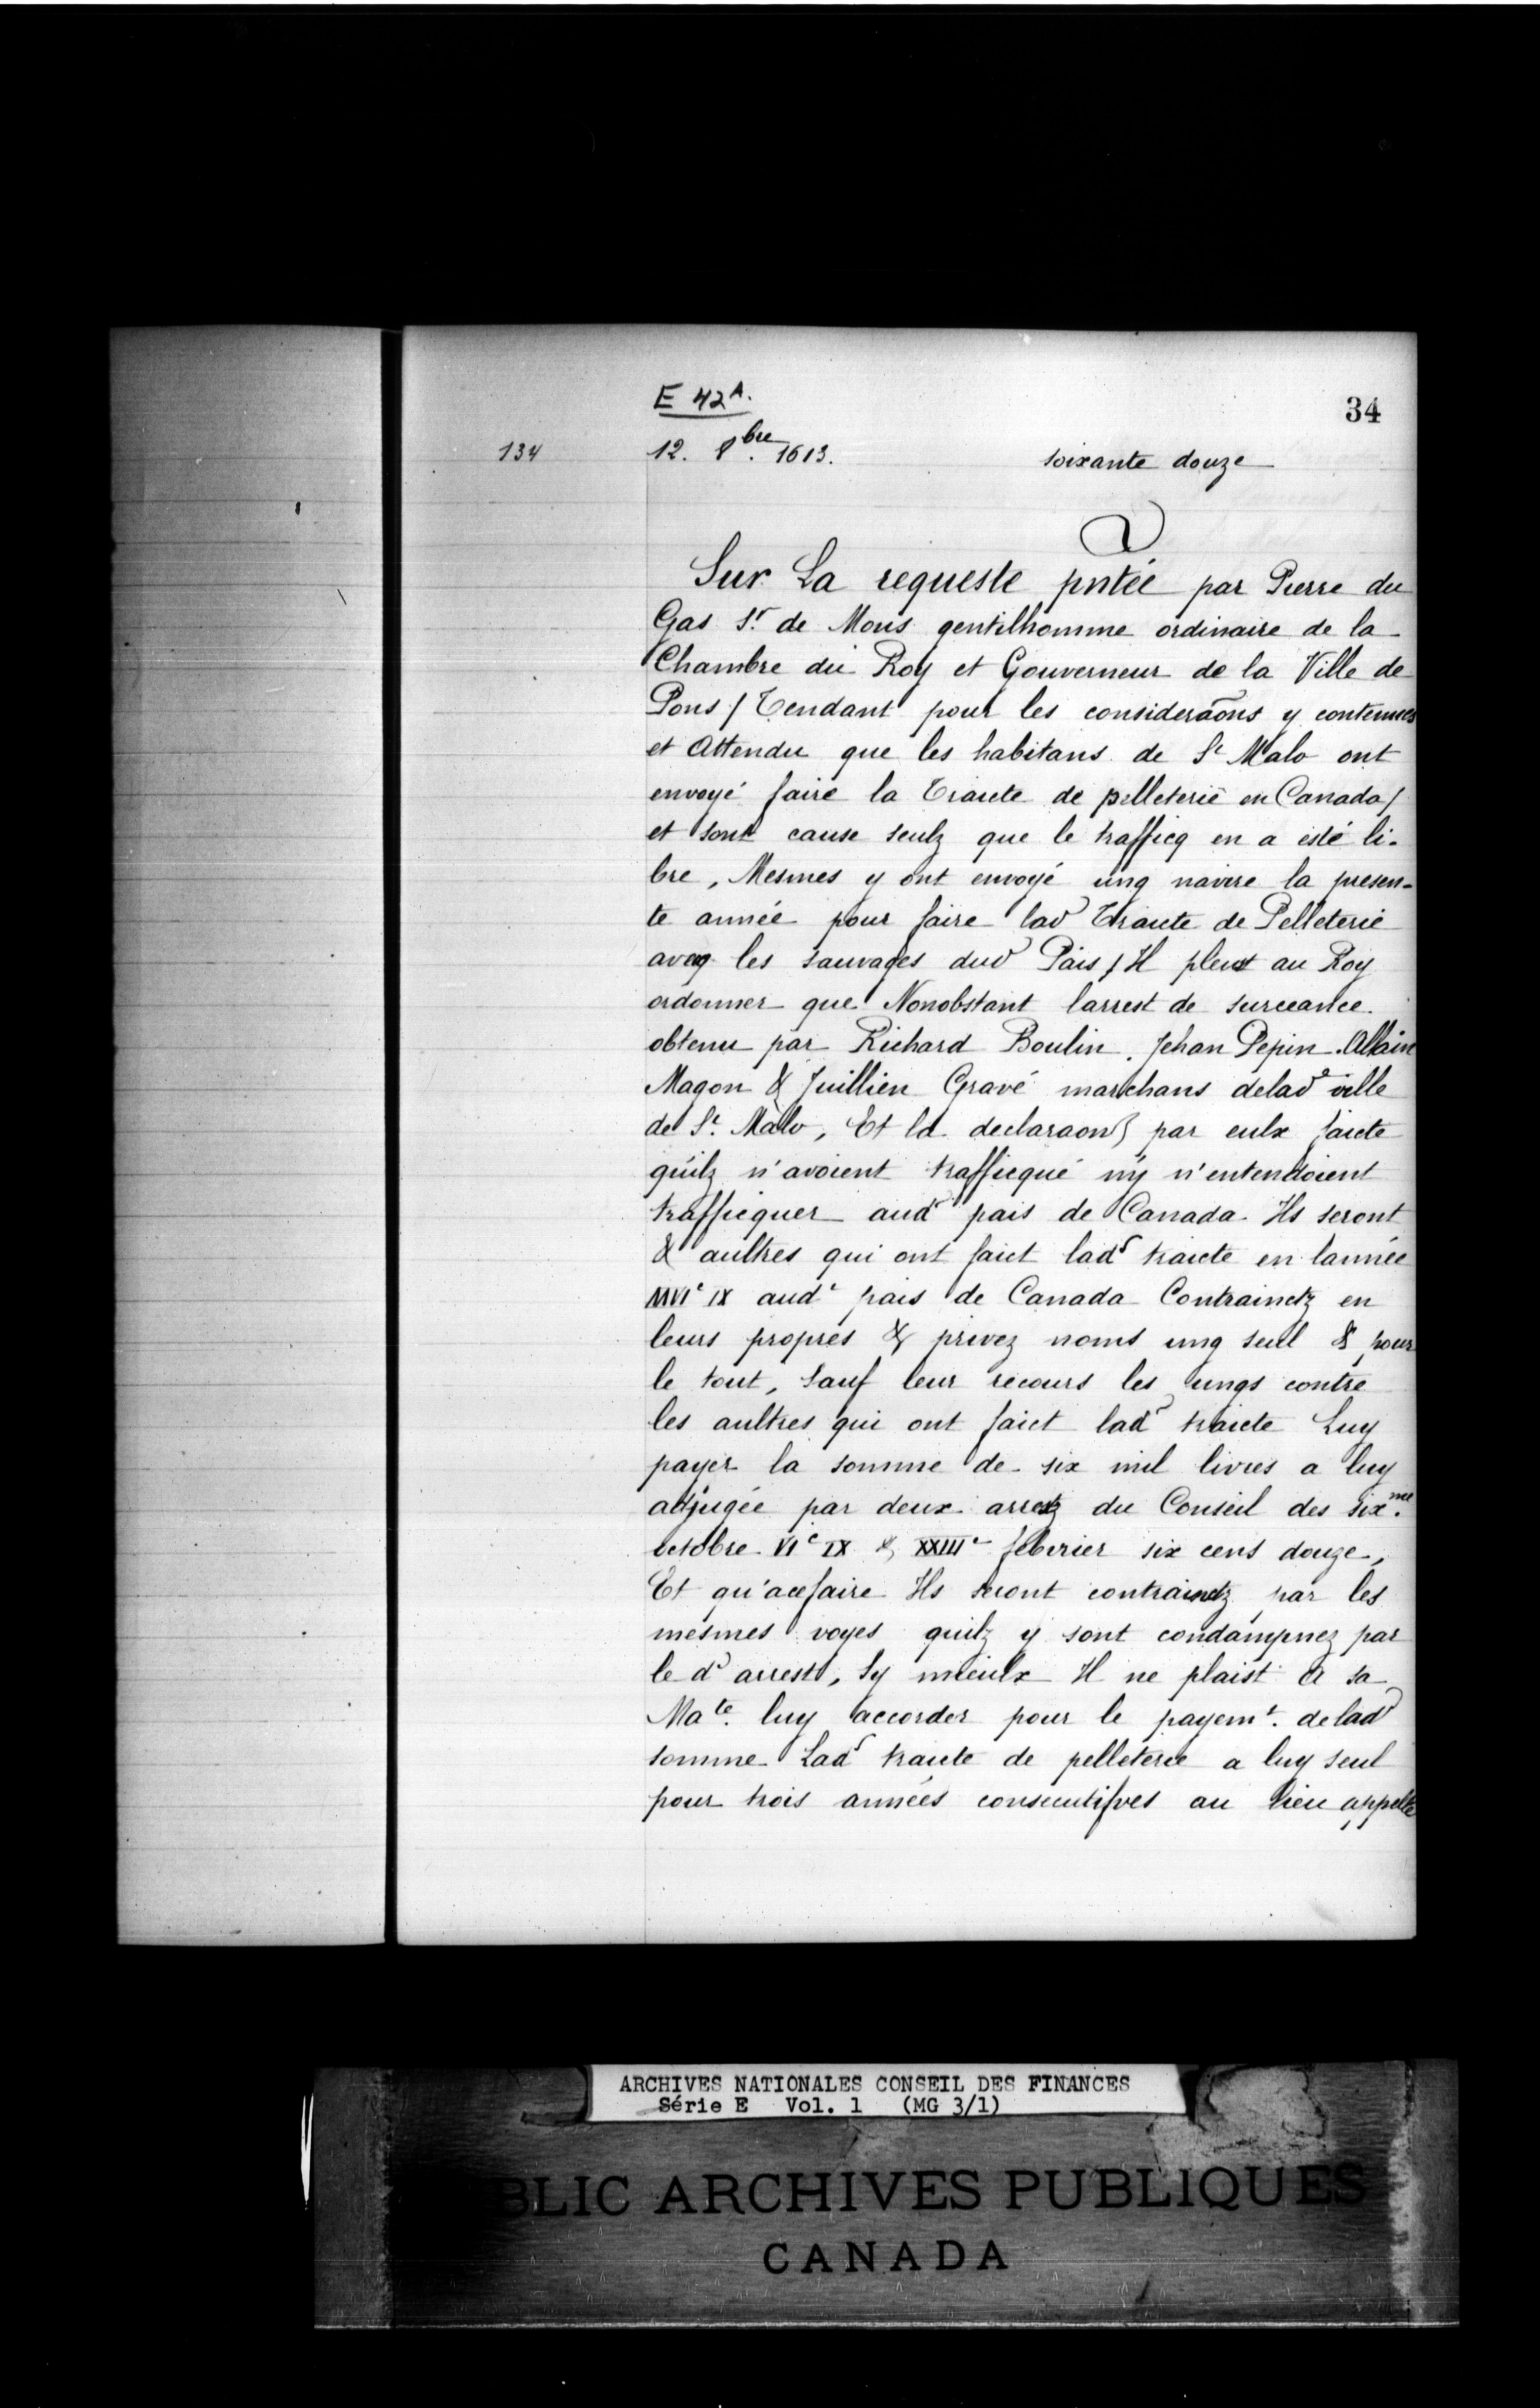 E 42A.
34
134
12. 8bre. 1613.
soixante douze
Sur La requeste pntée par Pierre du
Gas Sr. de Mons gentilhomme ordinaire de la
Chambre du Roy et Gouverneur de la Ville de
Pons / Tendant pour les considerãons y contenues
et Attendu que les habitans de St Malo ont
envoyé faire la Traicte de pelleterie en Canada /
et sont cause seulz que le trafficq en a esté li-
bre, Mesmes y ont envoyé ung navire la presen-
te année pour faire lad Traicte de Pelleterie
avecq les sauvages dud Pais / Il pleust au Roy
ordonner que Nonobstant larrest de surceance
obtenu par Richard Boulin. Jehan Pepin. Allain
Magon & Juillien Gravé marchans delade ville
de St. Malo, Et la declaraon par eulx faicte
quilz n'avoient trafficqué ny n'entendoient
trafficquer aud pais de Canada. Ils seront
& aultres qui ont faict lad traicte en lannée
MVIc IX aud pais de Canada Contrainctz en
leurs propres & privez noms ung seul & pour
le tout, Sauf leur recours les ungs contre
les aultres qui ont faict lad traicte Luy
payer la somme de six mil livres a luy
adjugée par deux arrestz du Conseil des sixme.
octobre VIc IX & XXIIIe febvrier six cens douze,
Et qu'acefaire Ils seront contrainctz par les
mesmes voyes quilz y sont condampnez par
le d arrest, Sy mieulx Il ne plaist A sa
Mate. luy accorder pour le payemt. delad
somme Lad traicte de pelleterie a luy seul
pour trois années consecutifves au lieu appellé
ARCHIVES NATIONALES CONSEIL DES FINANCES
Série E Vol. 1 (MG 3/1)
BLIC ARCHIVES PUBLIQUES
CANADA